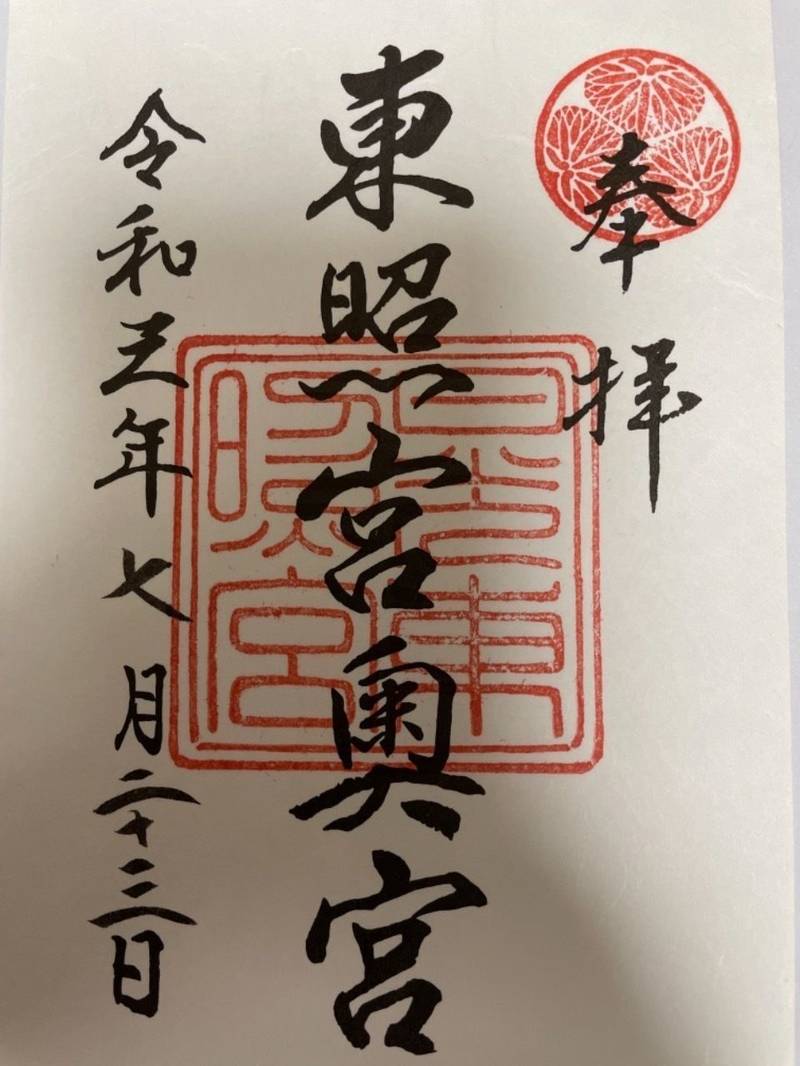 奉拝
東照宮奥宮
令和三年七月二十三日
日光東
照宮